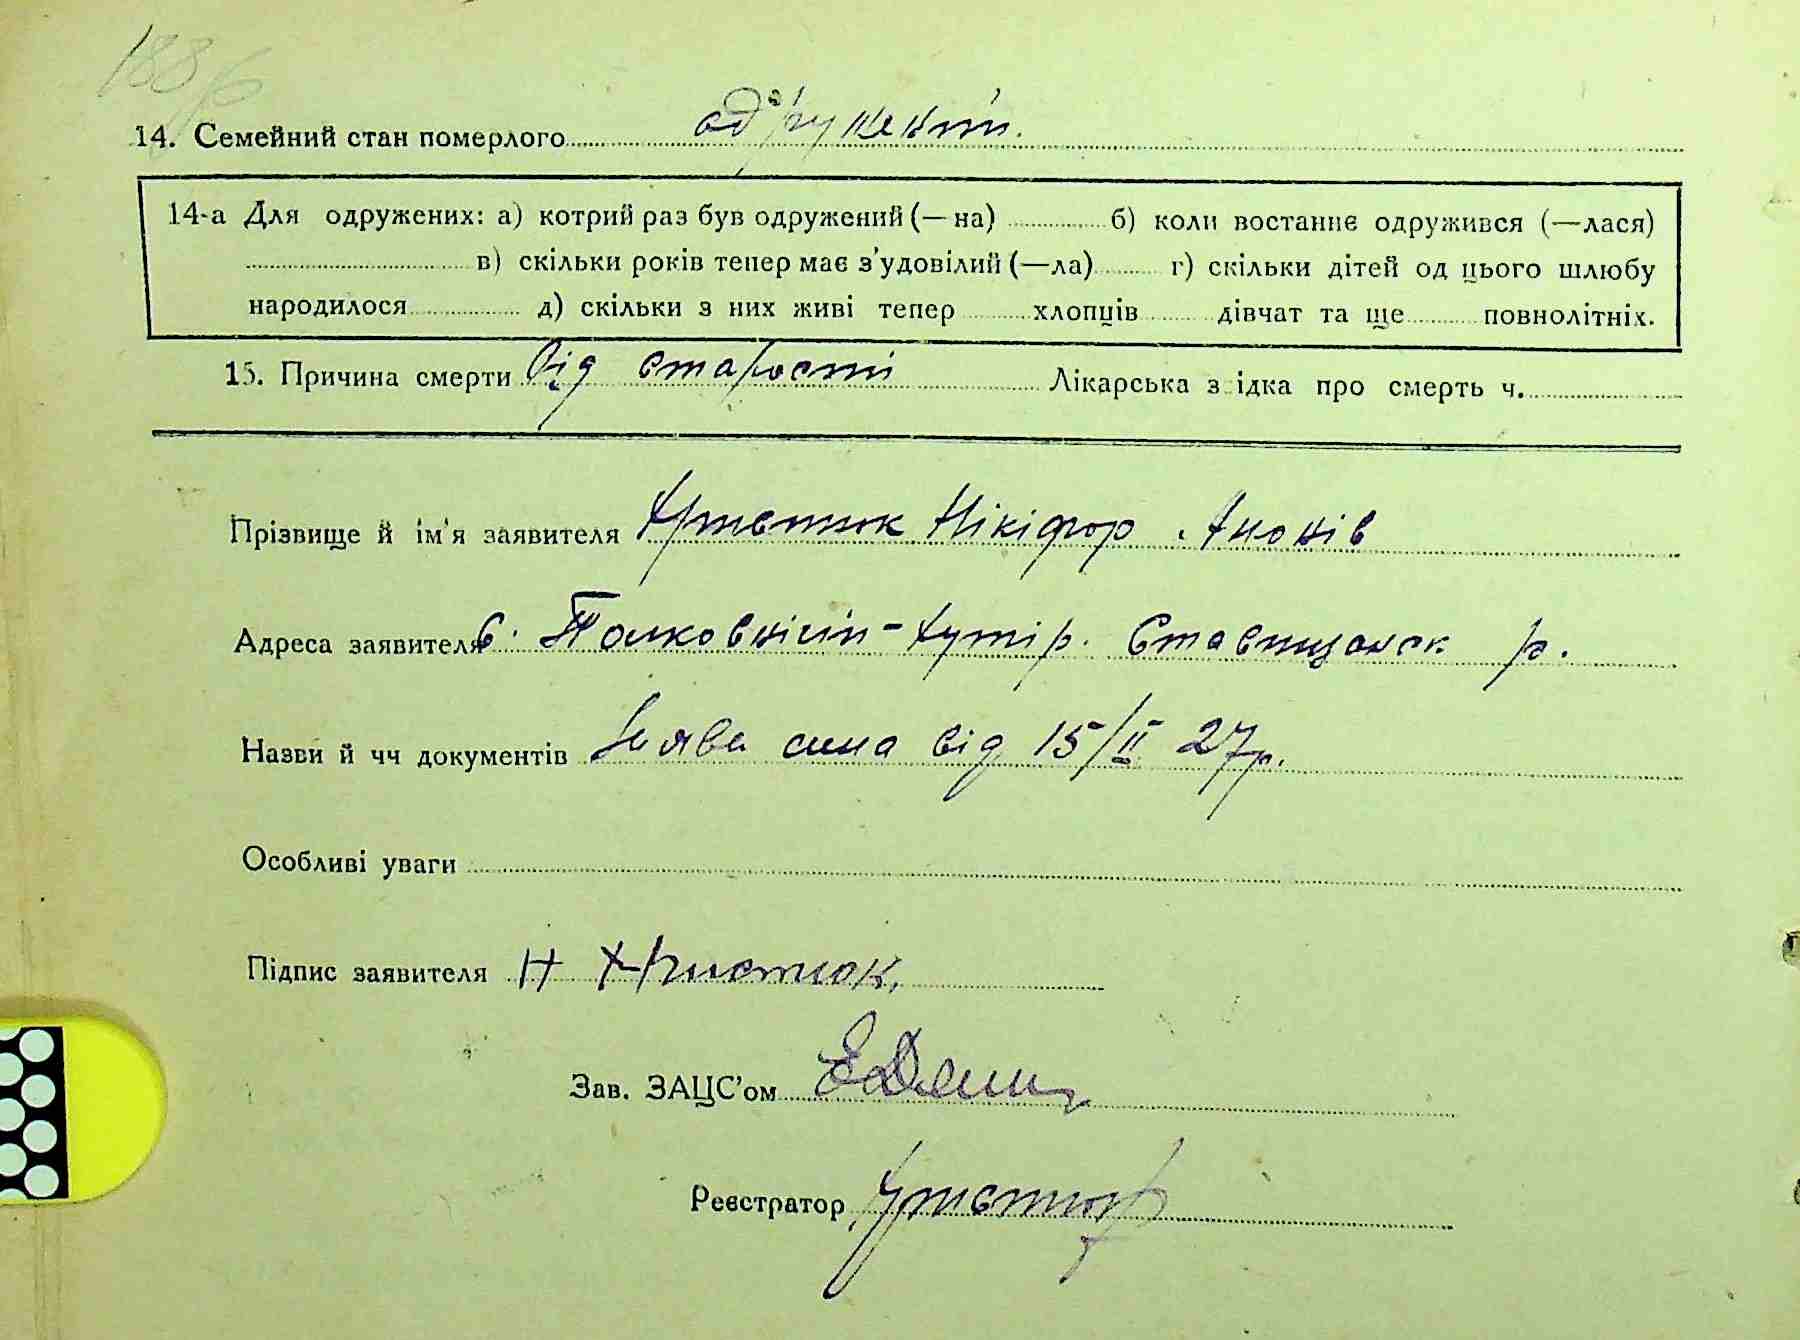 188 р
14. Семейний стан померлого одружений.
14-а Для одружених: а) котрий раз був одружений (—на) б) коли востаннє одружився (—лася)
в) скільки років тепер має з'удовілий (—ла) г) скільки дітей од цього шлюбу
народилося д) скільки з них живі тепер хлопців дівчат та ще повнолітніх.
15. Причина смерти Від старости Лікарська з ідка про смерть ч.
Прізвище й ім'я заявителя Христюк Нікіфор
Адреса заявителя с. Полковничий-Хутір. Ставищанск р.
Назви й чч документів Заява сина від 15/II 27р.
Особливі уваги
Підпис заявителя Н Христюк,
Зав. ЗАЦС'ом
Реєстратор